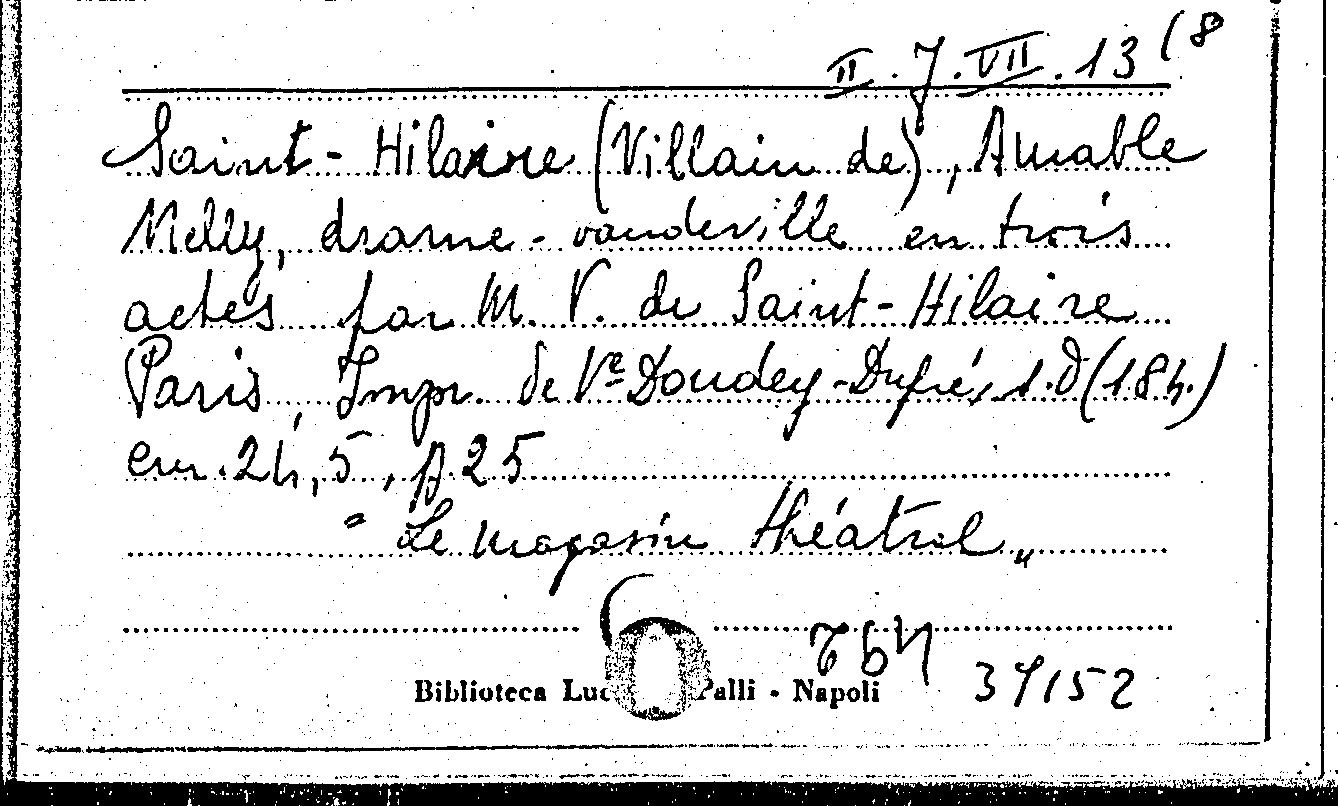 II. J. VII. 13 (8
Saint-Hilaire (Villain de), Amable
Nelly, drame-vaudeville en trois
actes par M. V. de Saint-Hilaire
Paris, Impr. de Ve Dondey-Dupré, s.d (184.)
cm. 24,5, p. 25
" Le magasin théatral "
Biblioteca Luc Palli - Napoli
37152